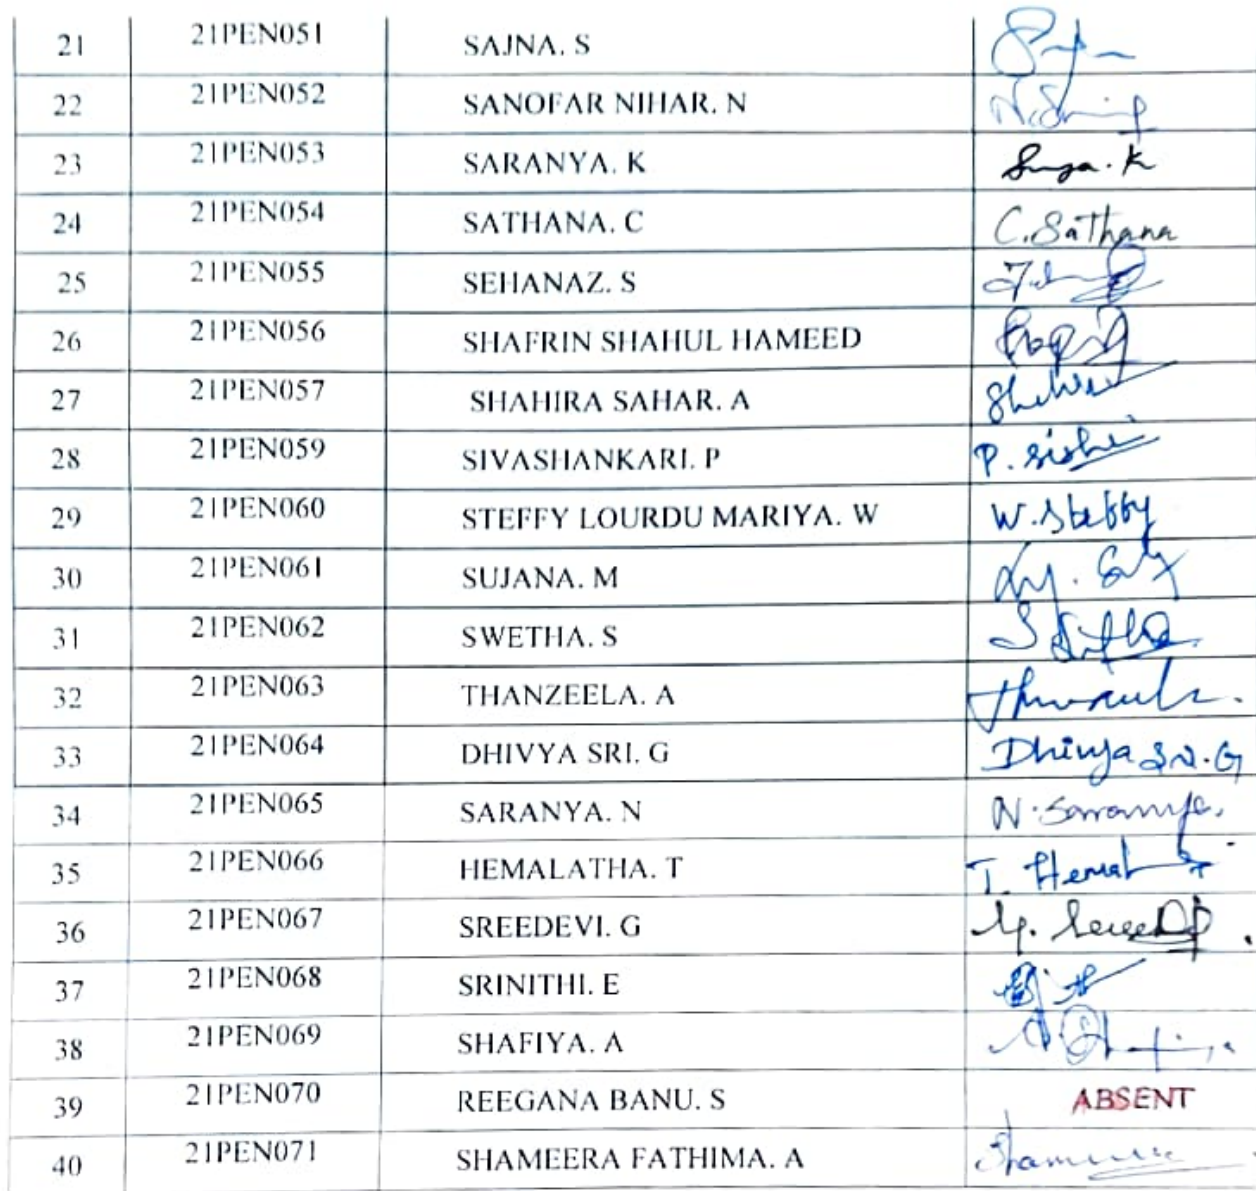 21 21PEN051 SAJNA. S
22 21PEN052 SANOFAR NIHAR. N
23 21PEN053 SARANYA. K
24 21PEN054 SATHANA. C C. Sathana
25 21PEN055 SEHANAZ. S
26 21PEN056 SHAFRIN SHAHUL HAMEED
27 21PEN057 SHAHIRA SAHAR. A
28 21PEN059 SIVASHANKARI. P
29 21PEN060 STEFFY LOURDU MARIYA. W W. Steffy
30 21PEN061 SUJANA. M
31 21PEN062 SWETHA. S
32 21PEN063 THANZEELA. A
33 21PEN064 DHIVYA SRI. G Dhivya Sri. G
34 21PEN065 SARANYA. N N. Saranya.
35 21PEN066 HEMALATHA. T
36 21PEN067 SREEDEVI. G
37 21PEN068 SRINITHI. E
38 21PEN069 SHAFIYA. A
39 21PEN070 REEGANA BANU. S ABSENT
40 21PEN071 SHAMEERA FATHIMA. A